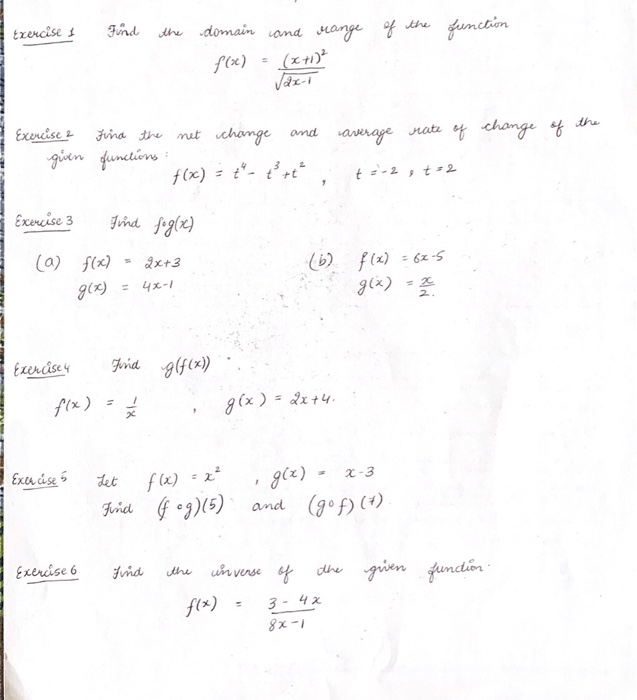 Exercise 1 Find the domain and range of the function
f(x) = (x+1)² / √2x-1
Exercise 2 Find the net change and average rate of change of the
given functions :
f(x) = t⁴ - t³ + t² , t = -2 , t = 2
Exercise 3 Find fog(x)
(a) f(x) = 2x+3 (b) f(x) = 6x-5
g(x) = 4x-1 g(x) = x/2.
Exercise 4 Find g(f(x)) .
f(x) = 1/x , g(x) = 2x+4.
Exercise 5 Let f(x) = x² , g(x) = x-3
Find (f∘g)(5) and (g∘f)(7)
Exercise 6 Find the inverse of the given function.
f(x) = 3-4x / 8x-1